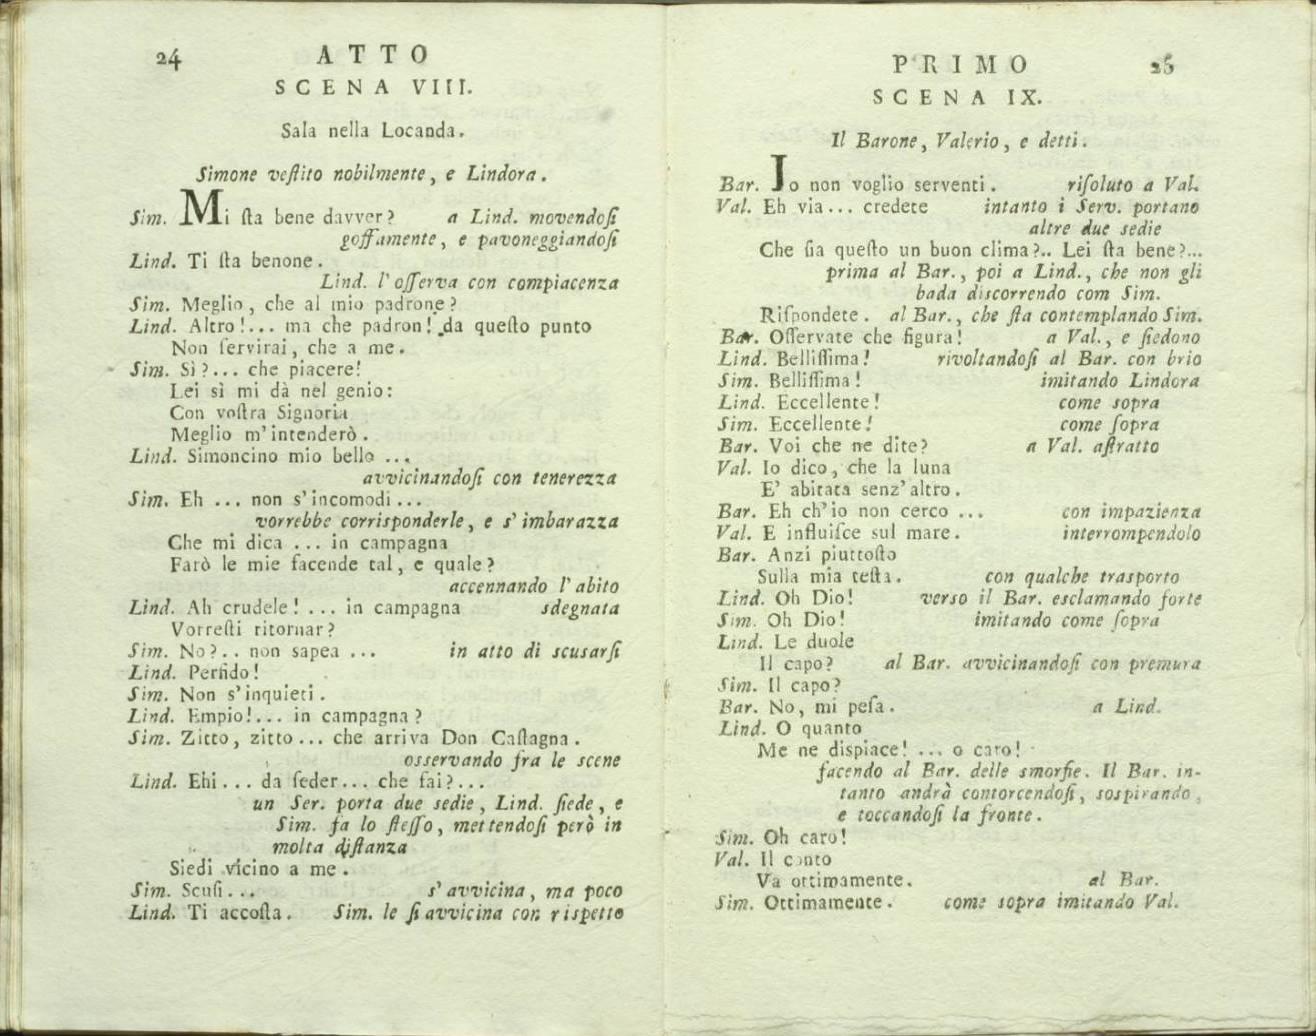 24 ATTO
SCENA VIII.
Sala nella Locanda.
Simone veſtito nobilmente, e Lindora.
Sim. Mi ſta bene davver? a Lind. movendoſi
goffamente, e pavoneggiandoſi
Lind. Ti ſta benone.
Lind. l'oſſerva con compiacenza
Sim. Meglio, che al mio padrone?
Lind. Altro!... ma che padron! da queſto punto
Non ſervirai, che a me.
Sim. Sì?... che piacere!
Lei sì mi dà nel genio:
Con voſtra Signoria
Meglio m'intenderò.
Lind. Simoncino mio bello ...
avvicinandoſi con tenerezza
Sim. Eh ... non s'incomodi ...
vorrebbe corrisponderle, e s'imbarazza
Che mi dica ... in campagna
Farò le mie facende tal, e quale?
accennando l'abito
Lind. Ah crudele! ... in campagna sdegnata
Vorreſti ritornar?
Sim. No?.. non sapea ... in atto di scusarſi
Lind. Perfido!
Sim. Non s'inquieti.
Lind. Empio!... in campagna?
Sim. Zitto, zitto... che arriva Don Caſtagna.
osservando fra le scene
Lind. Ehi... da ſeder... che fai?...
un Ser. porta due sedie, Lind. ſiede, e
Sim. fa lo ſteſſo, mettendoſi però in
molta diſtanza
Siedi vicino a me.
Sim. Scuſi... s'avvicina, ma poco
Lind. Ti accoſta. Sim. le ſi avvicina con rispetto
PRIMO 25
SCENA IX.
Il Barone, Valerio, e detti.
Bar. Io non voglio serventi. riſoluto a Val.
Val. Eh via... credete intanto i Serv. portano
altre due sedie
Che ſia queſto un buon clima?.. Lei ſta bene?...
prima al Bar., poi a Lind., che non gli
bada discorrendo com Sim.
Riſpondete. al Bar., che ſta contemplando Sim.
Bar. Oſſervate che figura! a Val., e ſiedono
Lind. Belliſſima! rivoltandoſi al Bar. con brio
Sim. Belliſſima! imitando Lindora
Lind. Eccellente! come sopra
Sim. Eccellente! come ſopra
Bar. Voi che ne dite? a Val. aſtratto
Val. Io dico, che la luna
E' abitata senz'altro.
Bar. Eh ch'io non cerco ... con impazienza
Val. E influiſce sul mare. interrompendolo
Bar. Anzi piuttoſto
Sulla mia teſta. con qualche trasporto
Lind. Oh Dio! verso il Bar. esclamando forte
Sim. Oh Dio! imitando come ſopra
Lind. Le duole
Il capo? al Bar. avvicinandoſi con premura
Sim. Il capo?
Bar. No, mi peſa. a Lind.
Lind. O quanto
Me ne dispiace! ... o caro!
facendo al Bar. delle smorfie. Il Bar. in-
tanto andrà contorcendoſi, sospirando,
e toccandoſi la fronte.
Sim. Oh caro!
Val. Il conto
Va ottimamente. al Bar.
Sim. Ottimamente. come sopra imitando Val.